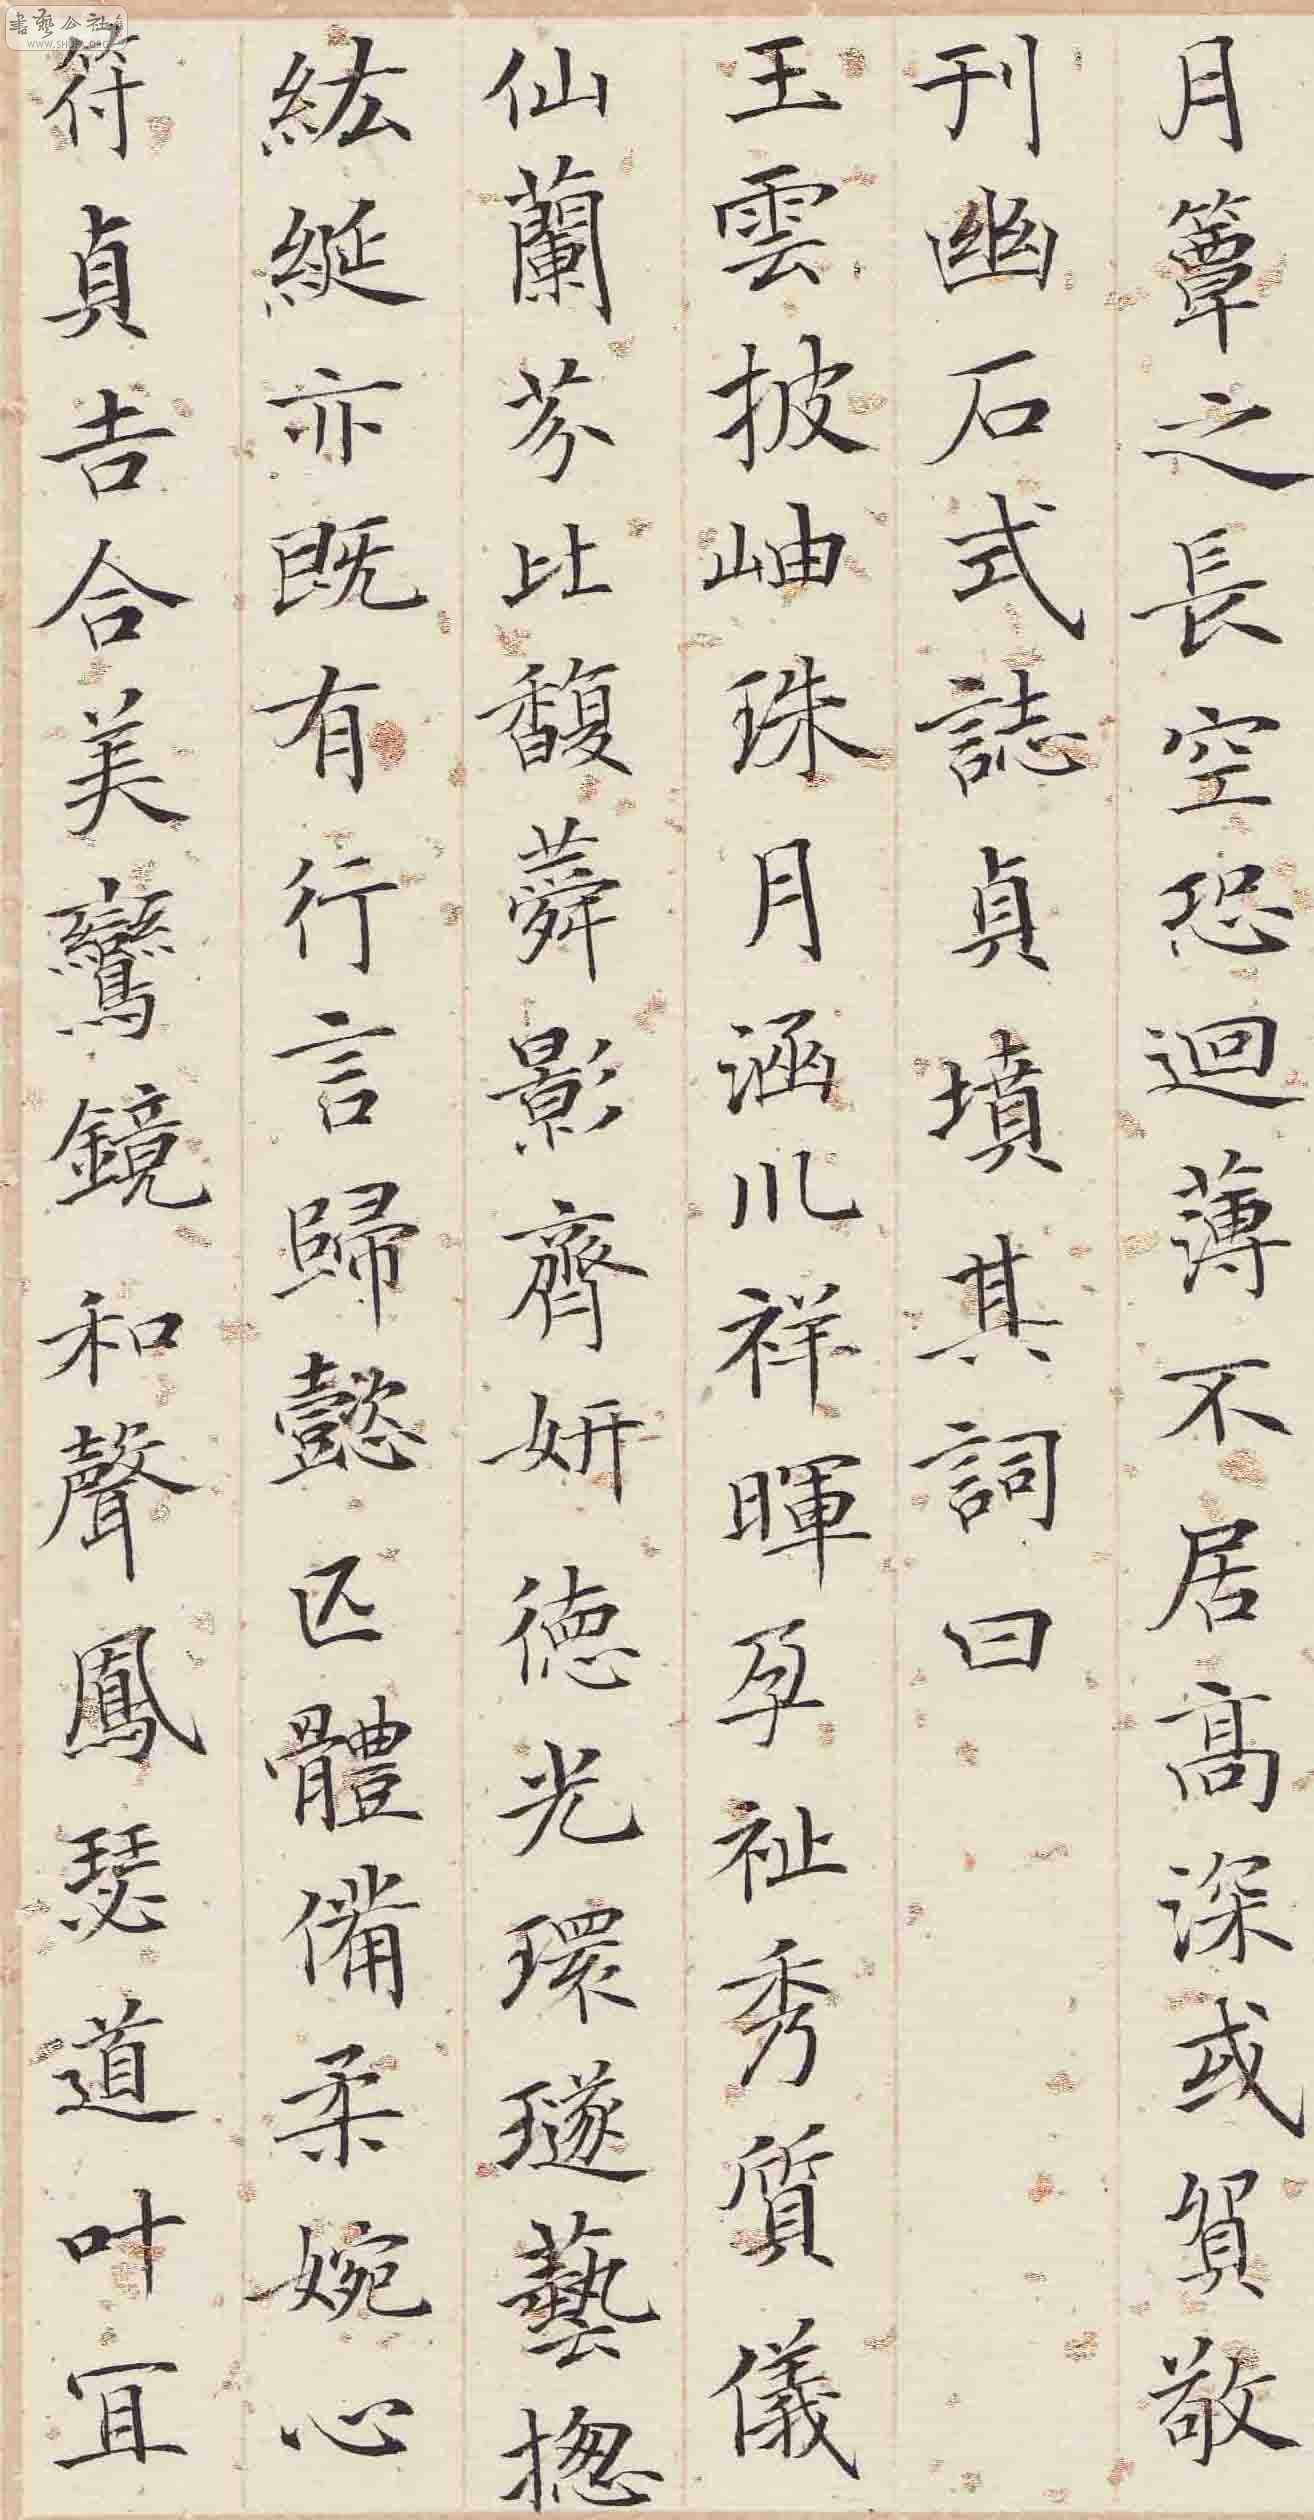 月簟之長空恐迴薄不居高深或貿敬
刊幽石式誌貞墳其詞曰
玉雲披岫珠月涵川祥暉孕祉秀質儀
仙蘭芬比馥蕣影齊妍德光環璲藝揔
紘綖亦既有行言歸懿匹體備柔婉心
符貞吉合美鸞鏡和聲鳳瑟道叶宜
書藝公社
WWW.SHUFA.ORG